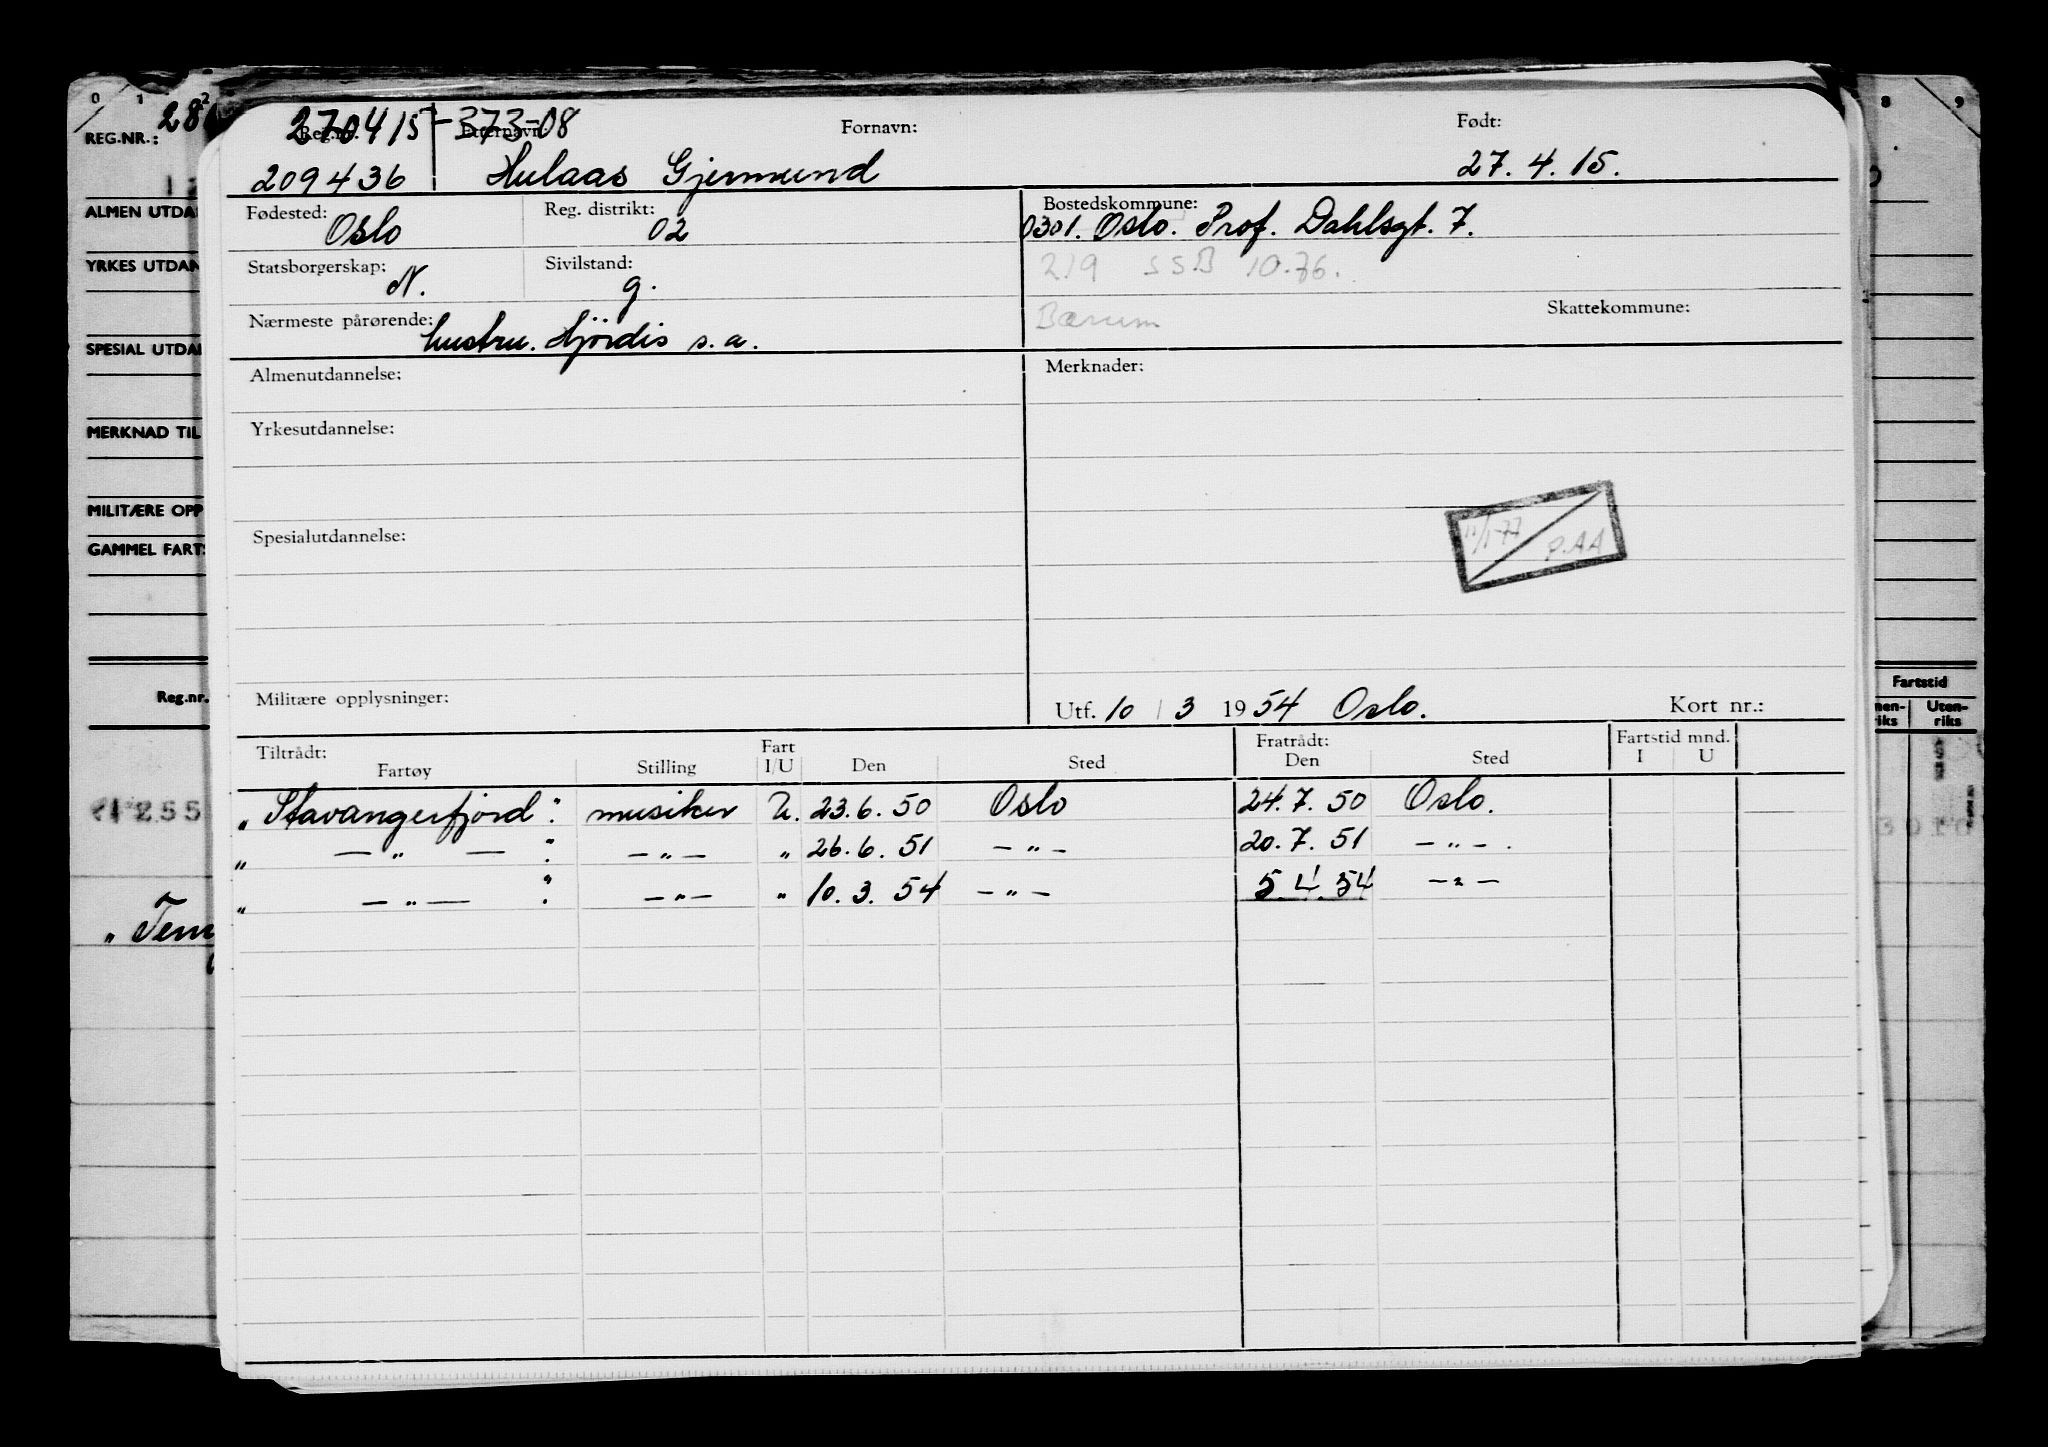 0 1 2
REG.NR.: 28
ALMEN UTDA
YRKES UTDAN
SPESIAL UTDA
MERKNAD TIL
MILITÆRE OPP
GAMMEL FARTS
Reg.nr.
255
" Tem
270415-373-08
Reg.nr. Etternavn: Fornavn: Født:
209436 Hulaas Gjermund 27.4.15.
Fødested: Oslo Reg. distrikt: 02 Bostedskommune: 0301. Oslo. Prof. Dahlsgt. 7.
Statsborgerskap: N. Sivilstand: g. 219 SSB 10.76.
Nærmeste pårørende: hustru. Hjördis s.a. Bærum Skattekommune:
Almenutdannelse: Merknader:
Yrkesutdannelse:
11/1-77 P.AA
Spesialutdannelse:
Militære opplysninger: Utf. 10 / 3 1954 Oslo. Kort nr.:
Tiltrådt: Fart Fratrådt: Fartstid mnd.
Fartøy Stilling I/U Den Sted Den Sted I U
"Stavangerfjord". musiker U. 23.6.50 Oslo 24.7.50 Oslo.
" — " — ". — " — " 26.6.51 — " — 20.7.51 — " — .
" — " — ". — " — " 10.3.54 — " — 5.4.54 — " —
8 9
Fartstid
nen-riks Uten-riks
3010